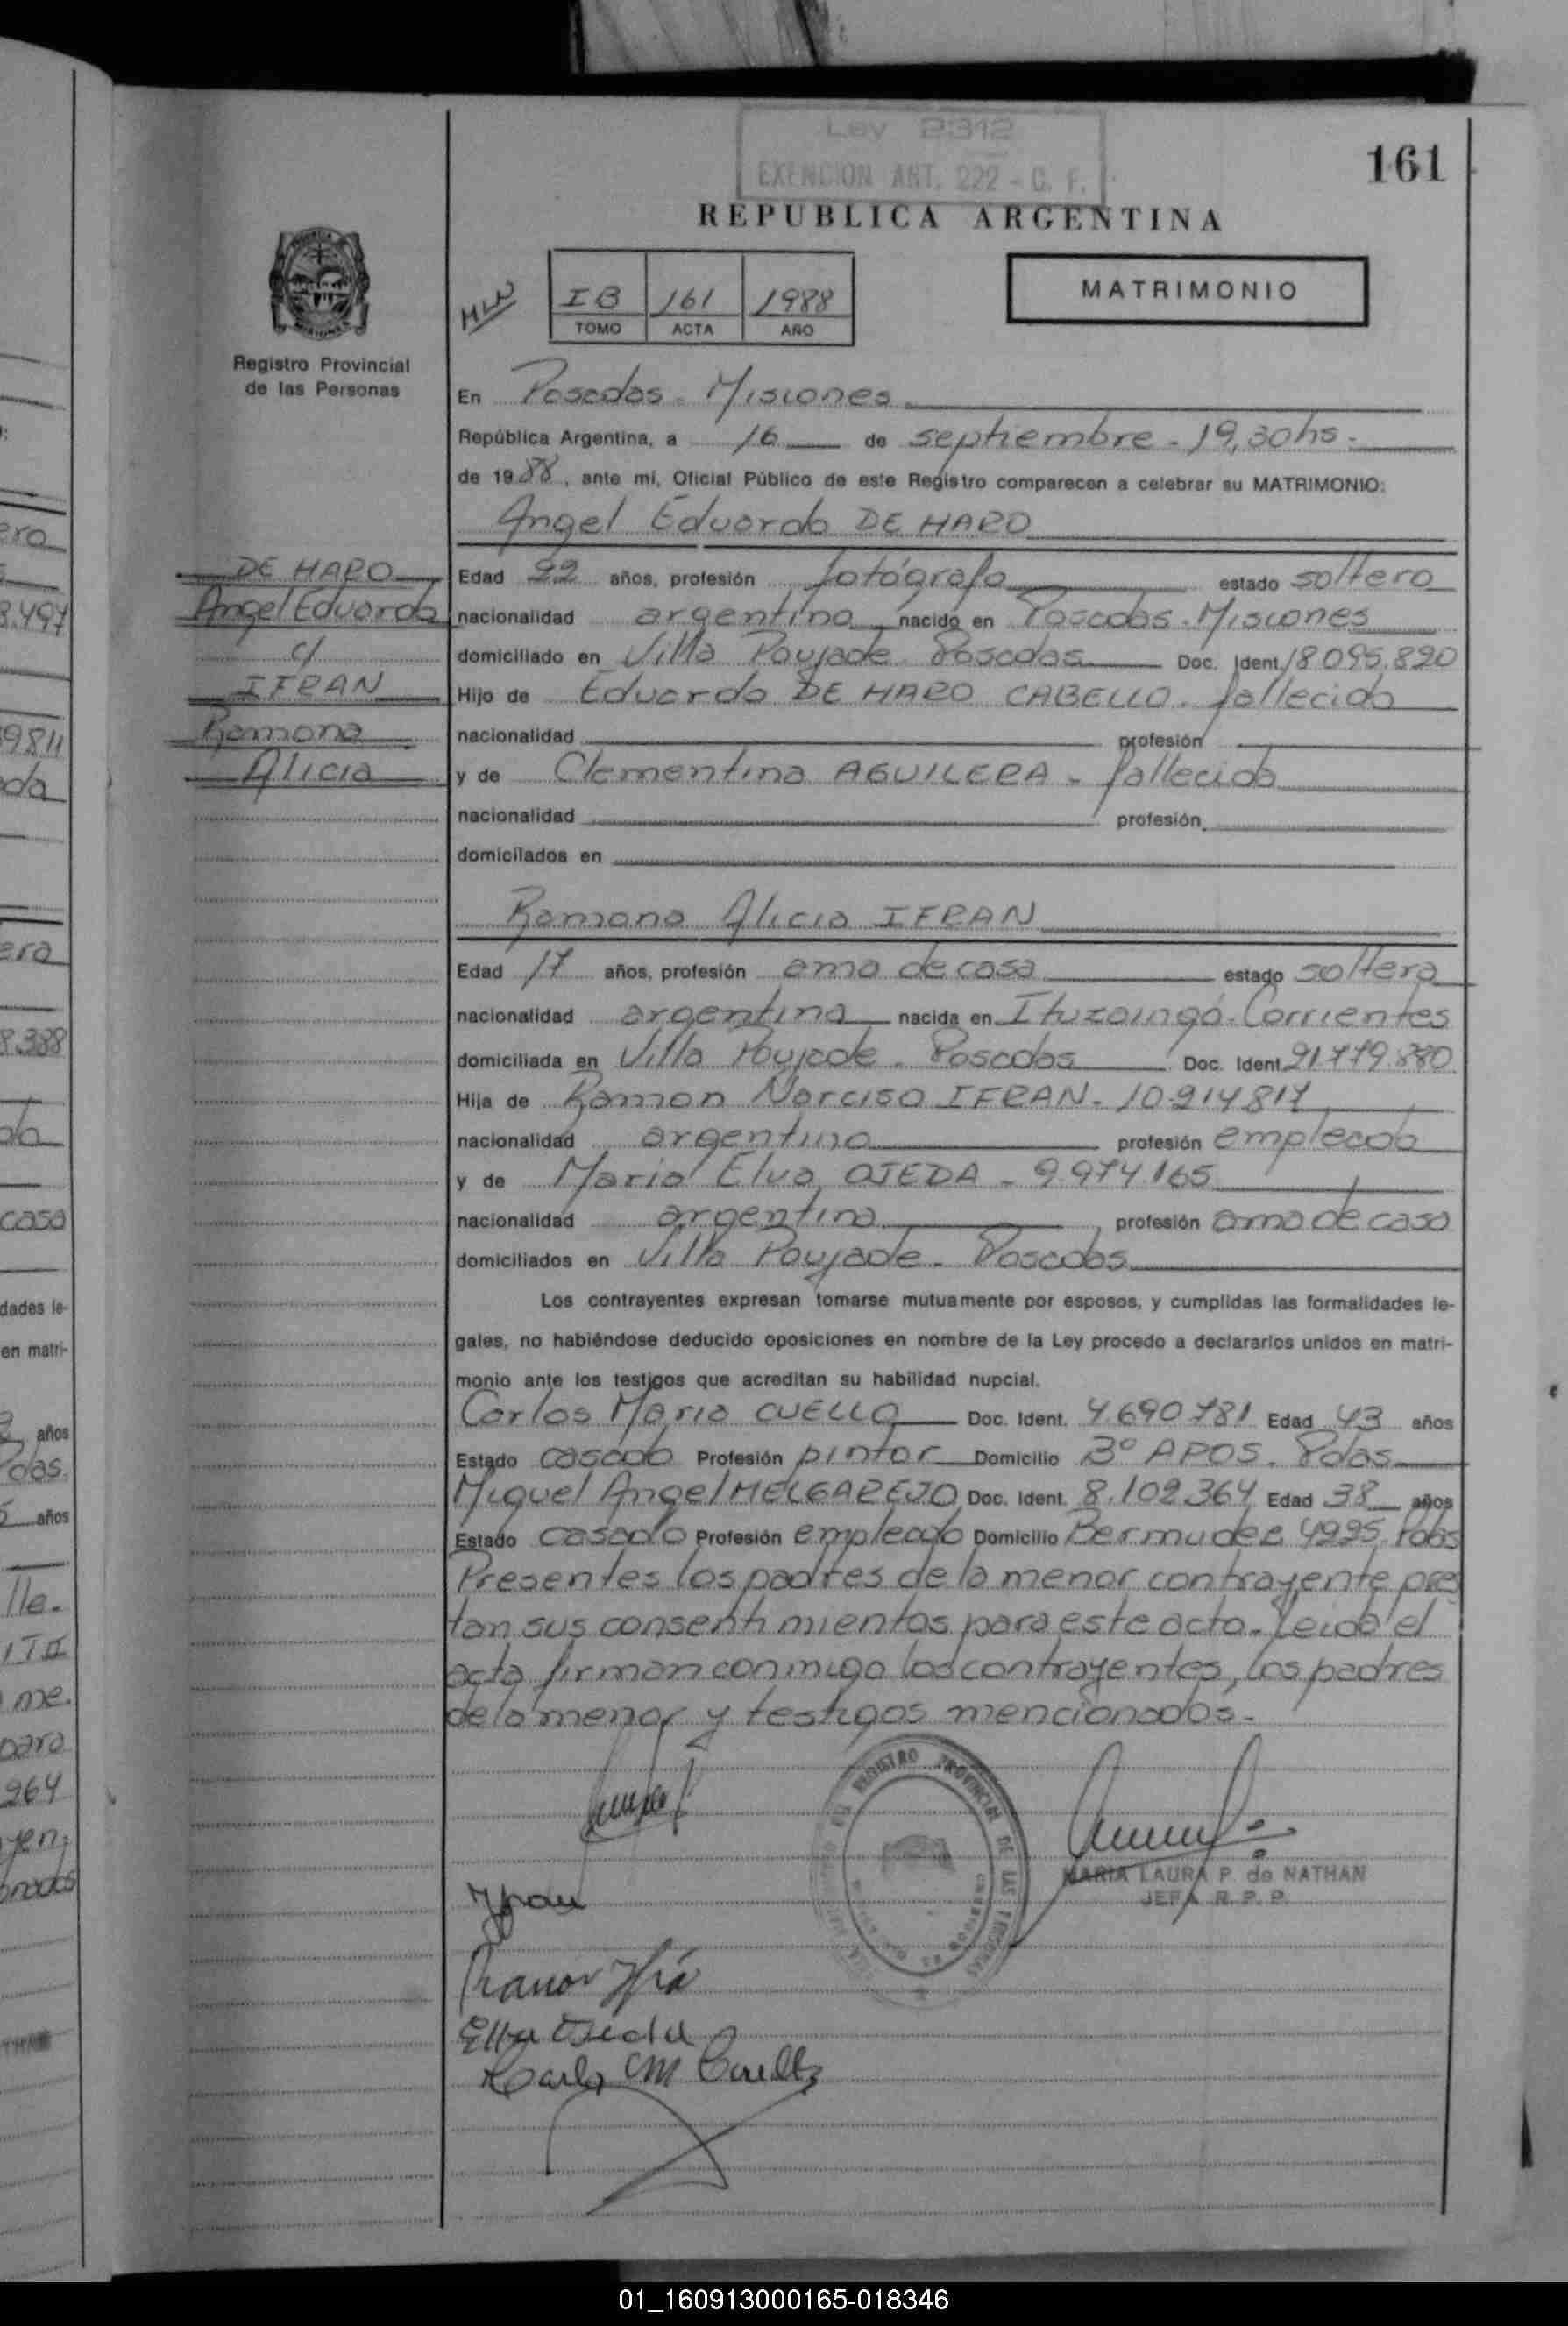 Ley 2312
EXENCION ART. 222 - C. F.
161
REPUBLICA ARGENTINA
MATRIMONIO
IB 161 1988
TOMO ACTA AÑO
Registro Provincial
de las Personas
En Posadas - Misiones
República Argentina, a 16 de septiembre - 19,30hs -
de 1988, ante mi, Oficial Público de este Registro comparecen a celebrar su MATRIMONIO:
Angel Eduardo DE HARO
DE HARO
Angel Eduardo
c/
IFRAN
Ramona
Alicia
Edad 22 años, profesión fotógrafo estado soltero
nacionalidad argentina nacido en Posadas - Misiones
domiciliado en Villa Poujade - Posadas Doc. Ident. 18.095.820
Hijo de Eduardo DE HARO CABELLO - fallecido
nacionalidad profesión
y de Clementina AGUILERA - fallecida
nacionalidad profesión
domicilados en
Ramona Alicia IFRAN
Edad 17 años, profesión ama de casa estado soltera
nacionalidad argentina nacida en Ituzaingó - Corrientes
domiciliada en Villa Poujade - Posadas Doc. Ident. 21.779.880
Hija de Ramon Narciso IFRAN - 10.214817
nacionalidad argentina profesión empleado
y de Maria Elva OJEDA - 9.974.165
nacionalidad argentina profesión ama de casa
domiciliados en Villa Poujade - Posadas
Los contrayentes expresan tomarse mutuamente por esposos, y cumplidas las formalidades le-
gales, no habiéndose deducido oposiciones en nombre de la Ley procedo a declararlos unidos en matri-
monio ante los testigos que acreditan su habilidad nupcial.
Carlos Mario CUELLO Doc. Ident. 4.690781 Edad 43 años
Estado casado Profesión pintor Domicilio 3º APOS. Pdas
Miguel Angel MELGAREJO Doc. Ident. 8.102.364 Edad 38 años
Estado casado Profesión empleado Domicilio Bermudez 4225. Pdas
Presentes los padres de la menor contrayente pres
tan sus consentimientos para este acto. Leida el
acta firman conmigo los contrayentes, los padres
de la menor y testigos mencionados -
REGISTRO PROVINCIAL DE LAS PERSONAS
MARIA LAURA P. de NATHAN
JEFA R. P. P.
Ramon
Elva Ojeda
Carlos M Cuello
01_160913000165-018346